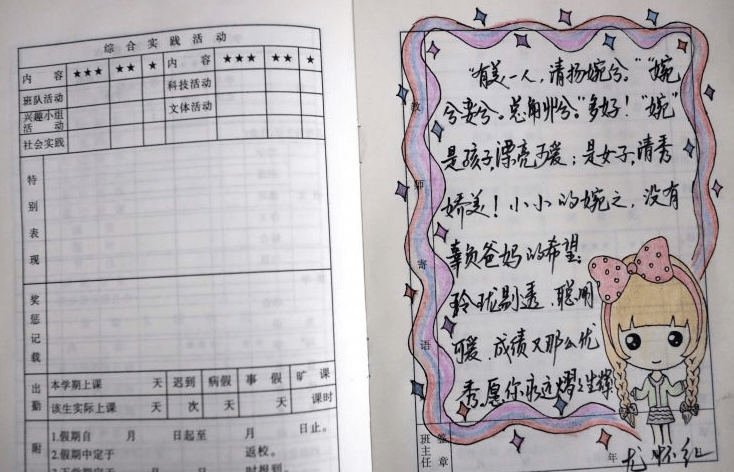 综合实践活动
内 容 ★★★ ★★ ★ 内 容 ★★★ ★★ ★
班队活动 科技活动
兴趣小组活动 文体活动
社会实践
特别表现
奖惩记载
出勤 本学期上课 天 迟到 病假 事假 旷课
该生实际上课 天 次 天 天 课时
附 1.假期自 月 日起至 月 日止。
2.假期中定于 返校。
时报到。
教师寄语
“有美一人，清扬婉兮。”“婉
兮娈兮。总角丱兮。”多好！“婉”
是孩子，漂亮可爱；是女子，清秀
娇美！小小的婉之，没有
辜负爸妈的希望：
玲珑剔透、聪明
可爱、成绩又那么优
秀。愿你永远熠熠生辉
班主任签章
年